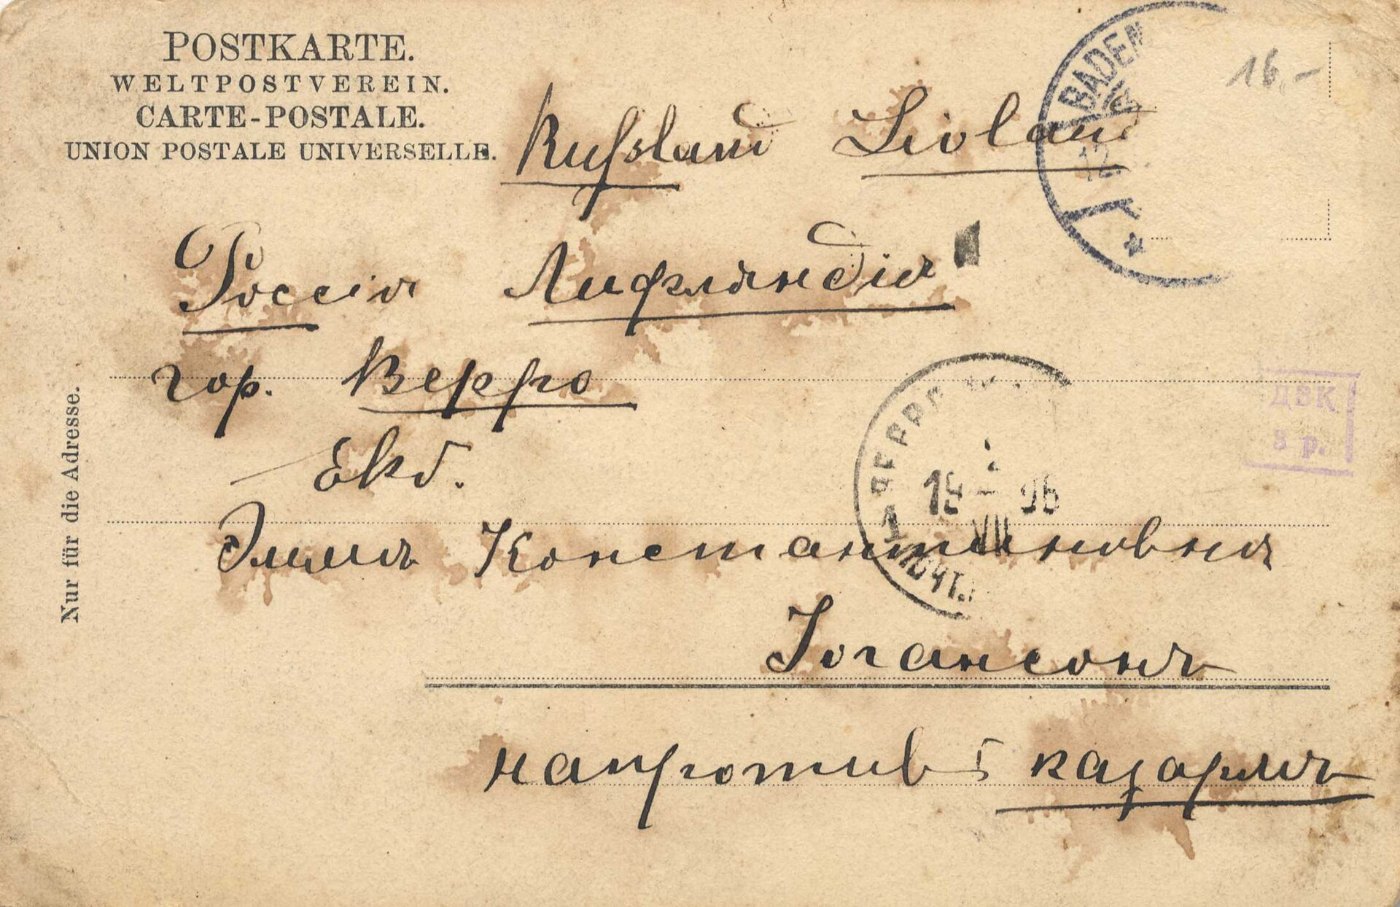 POSTKARTE.
WELTPOSTVEREIN.
CARTE-POSTALE.
UNION POSTALE UNIVERSELLE.
BADEN
16,-
Russland Livland
Россія Лифляндія
гор. Верро
Екб.
Эмма Константиновна
Іогансонъ
напротивъ казармъ
Nur für die Adresse.
ВЕРРО
ПОЧТ
VII
ДВК
3 р.